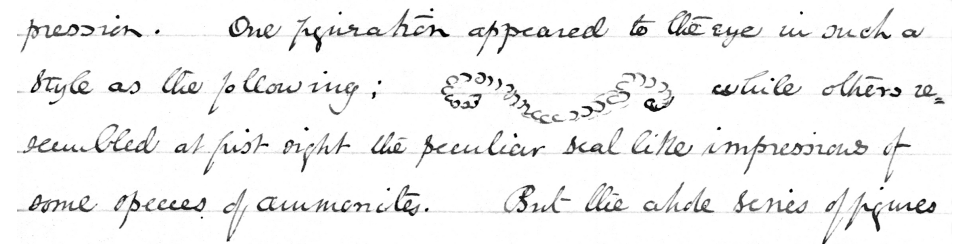 pression. One figuration appeared to the eye in such a
style as the following; while others re=
sembled at first sight the peculiar seal like impressions of
some species of ammonites. But the whole series of figures